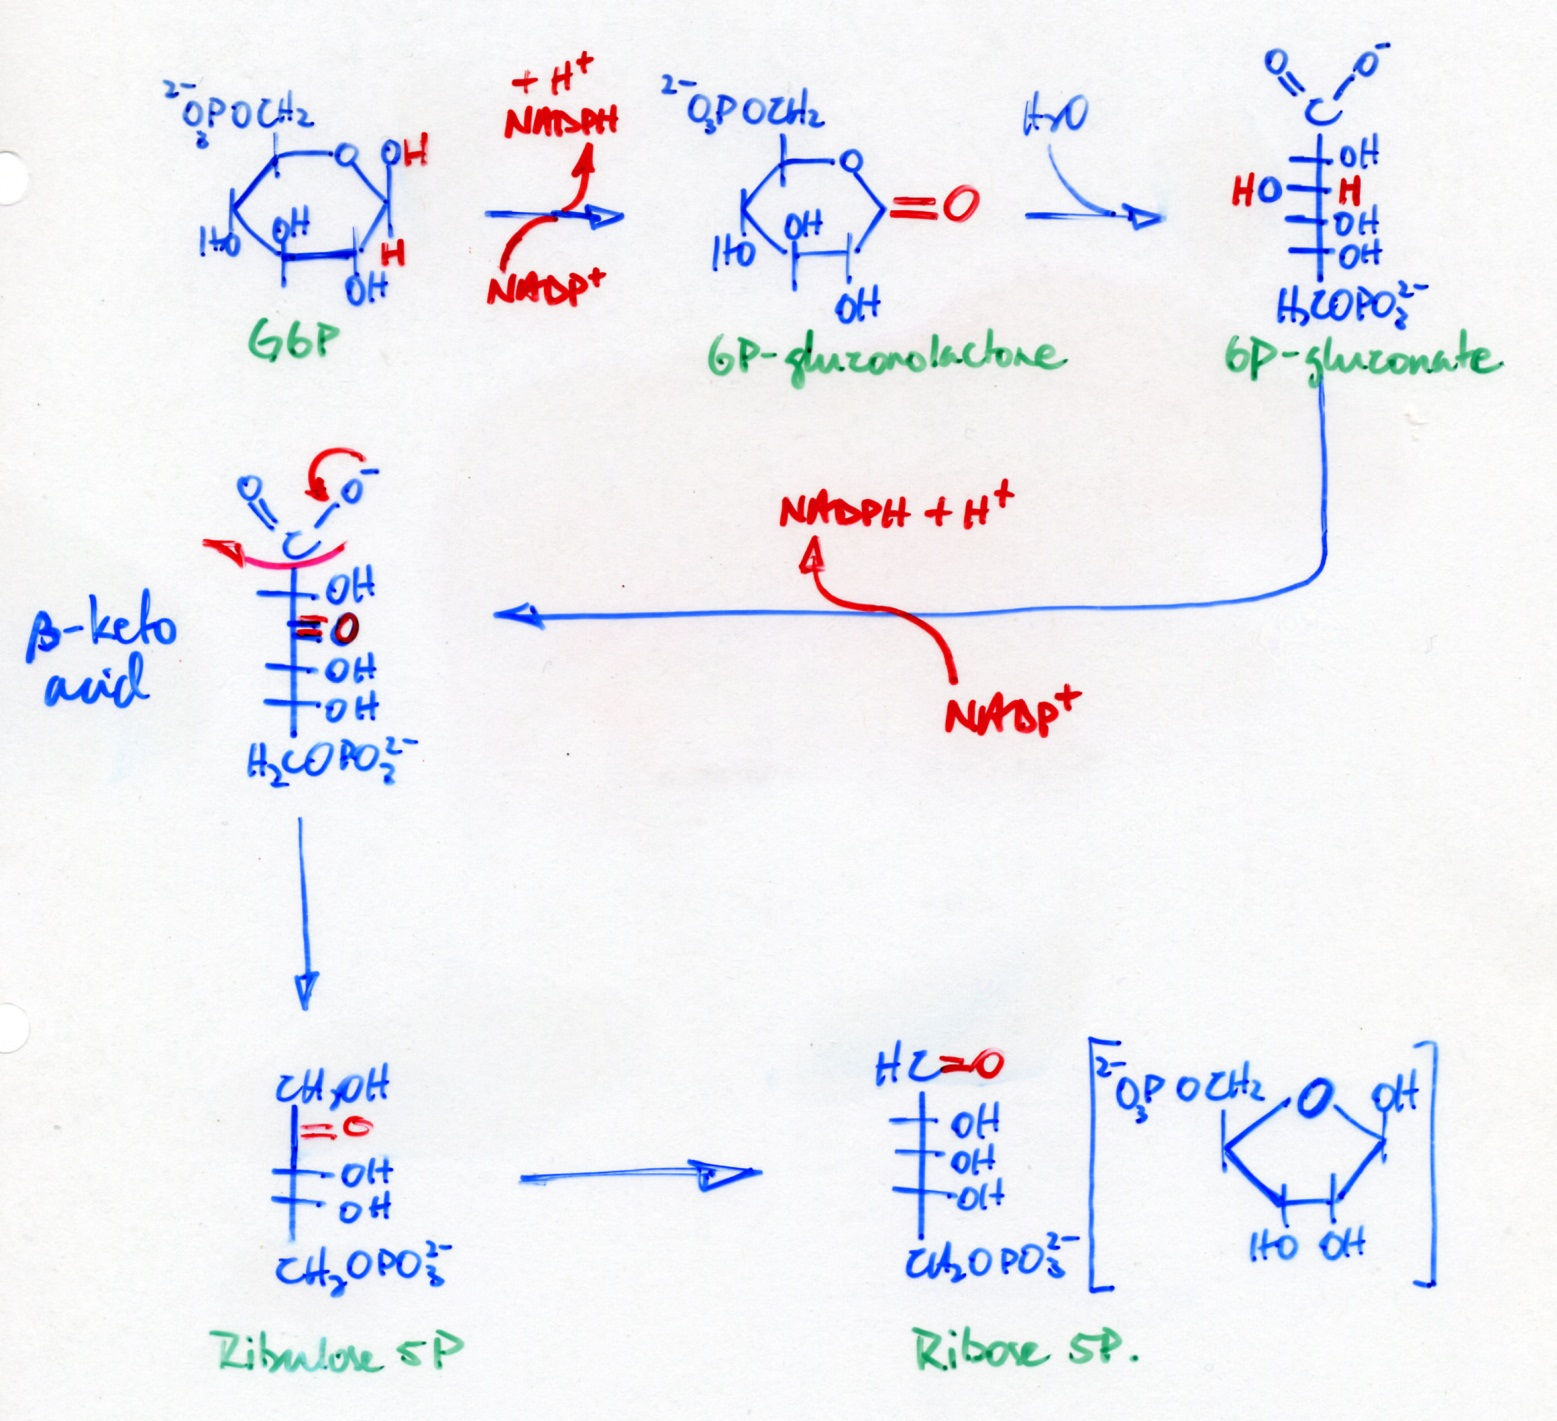 + H⁺
NADPH
²⁻O₃POCH₂
O
OH
H
HO
OH
OH
G6P
NADP⁺
²⁻O₃POCH₂
O
=O
HO
OH
OH
6P-gluconolactone
H₂O
O
O⁻
C
OH
HO H
OH
OH
H₂COPO₃²⁻
6P-gluconate
O
O⁻
C
OH
=O
OH
OH
H₂COPO₃²⁻
β-keto
acid
NADPH + H⁺
NADP⁺
CH₂OH
=O
OH
OH
CH₂OPO₃²⁻
Ribulose 5P
HC=O
OH
OH
OH
CH₂OPO₃²⁻
²⁻O₃POCH₂
O
OH
HO OH
Ribose 5P.